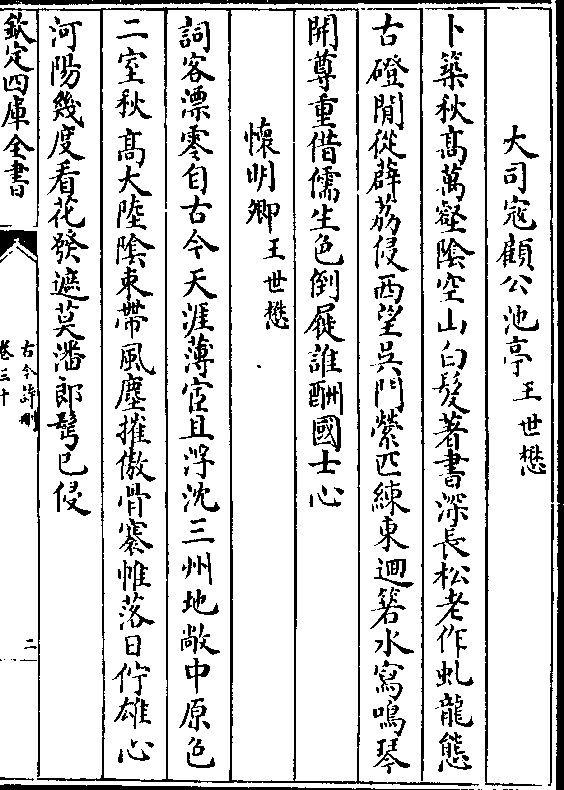 大司寇顧公池亭王世懋
卜築秋髙萬壑隂空山白髮著書深長松老作虬龍態
古磴閒從薜荔侵西望吳門縈匹練東廻箬水寫鳴琴
開尊重借儒生色倒屣誰酬國士心
懷明卿王世懋
詞客漂零自古今天涯薄宦且浮沈三州地敞中原色
二室秋髙大陸隂束帶風塵摧傲骨褰帷落日佇雄心
河陽幾度看花發遮莫潘郎鬢已侵
欽定四庫全書
古今詩刪
卷三十
二